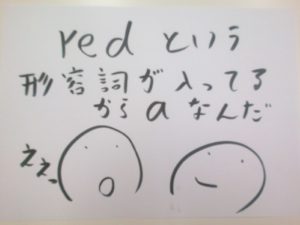 red という
形容詞が入ってる
から a なんだ
ええ、